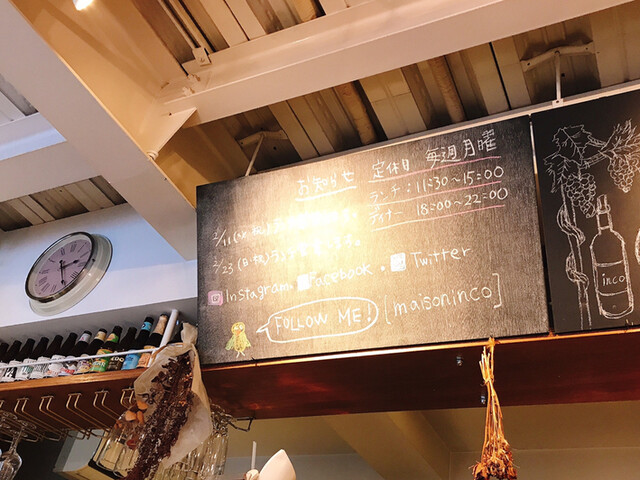 お知らせ
2/11(火・祝)
2/23(日・祝)
定休日 毎週月曜
ランチ:11:30~15:00
ディナー 18:00~22:00
Instagram. Facebook. Twitter
FOLLOW ME! [maisoninco]
inco